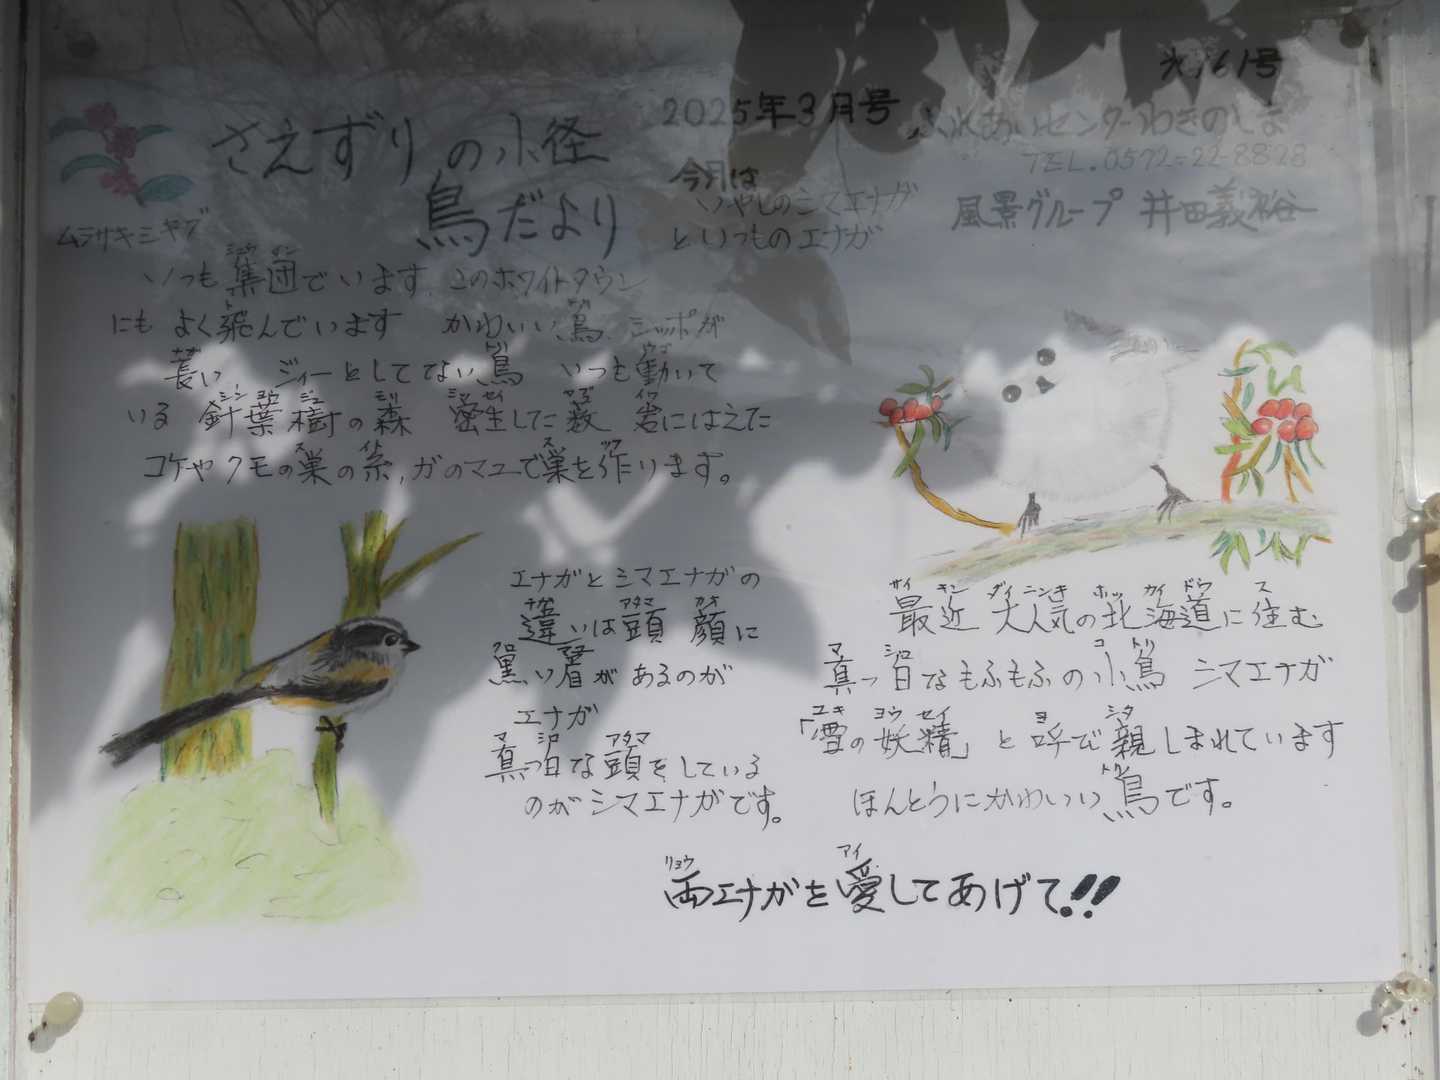 さえずりの小径
鳥だより
2025年3月号
今月は
いやしのシマエナガ
といつものエナガ
161号
ふれあいセンターわきのしま
TEL.0572-22-8828
風景グループ 井田義裕
ムラサキシキブ
いつも集団でいます このホワイトタウン
にも よく飛んでいます かわいい鳥 シッポが
長い ジィーとしてない鳥 いつも動いて
いる 針葉樹の森 密生した薮 岩にはえた
コケやクモの巣の糸,ガのマユで巣を作ります。
エナガとシマエナガの
違いは頭 顔に
黒い眉があるのが
エナガ
真っ白な頭をしている
のがシマエナガです。
最近 大人気の北海道に住む
真っ白なもふもふの小鳥 シマエナガ
「雪の妖精」と呼び親しまれています
ほんとうにかわいい鳥です。
両エナガを愛してあげて!!